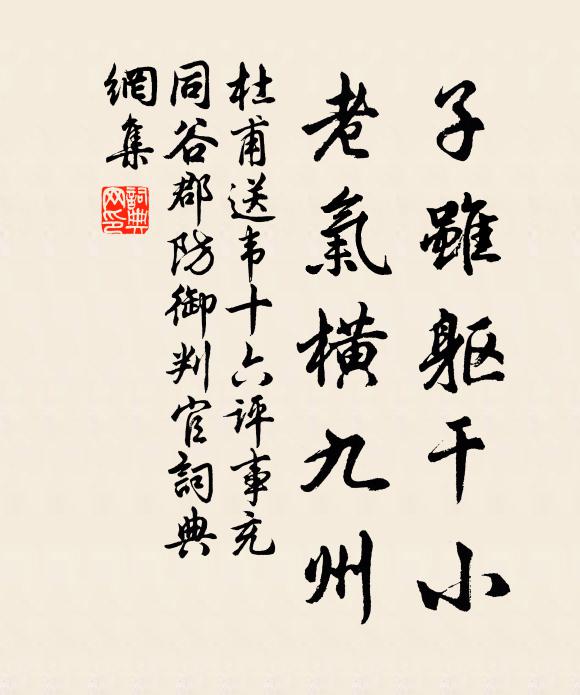 子雖軀干小
老氣橫九州
杜甫送韦十六評事充
同谷郡防御判官詞典
網集
詞典
网印